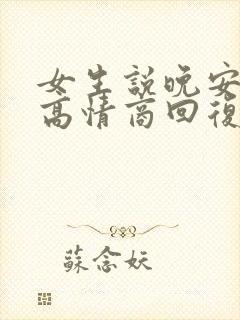 女生說晚安
高情商回復
蘇念妖